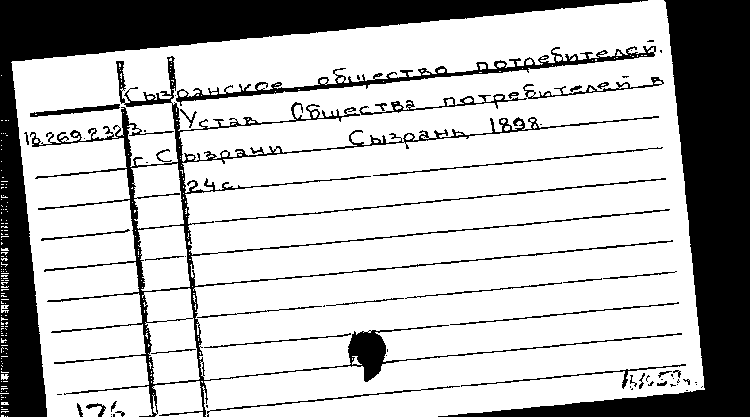 Сызранское общество потребителей.
18.269.2.323. Устав Общества потребителей в
г. Сызрани Сызрань, 1898.
24 с.
176